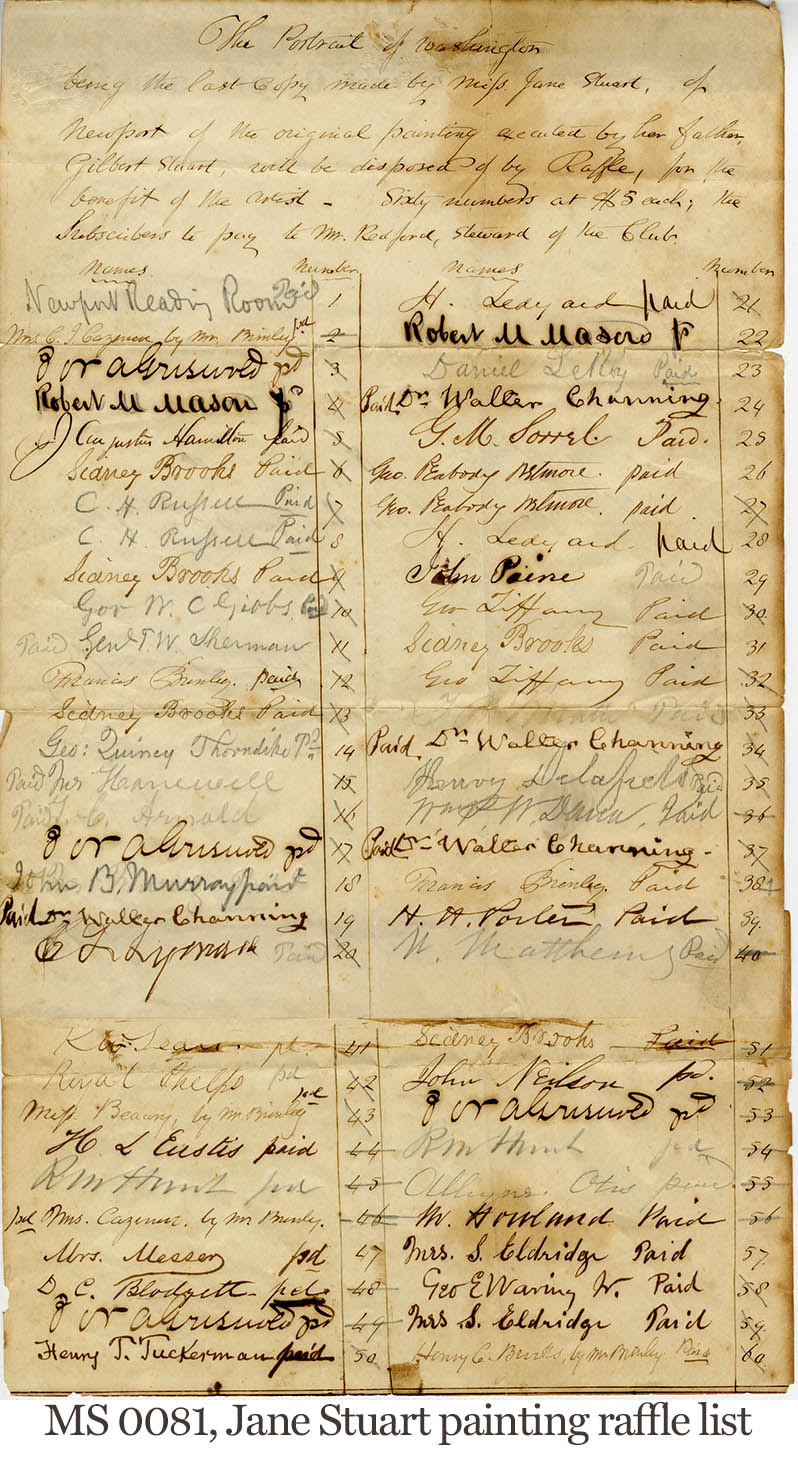 The Portrait of Washington
being the last Copy made by Miss Jane Stuart, of
Newport of the original painting executed by her father,
Gilbert Stuart, will be disposed of by Raffle, for the
benefit of the artist - Sixty numbers at $5 each; the
Subscribers to pay to Mr. Redford, Steward of the Club.
Names Number Names Number
Newport Reading Room Paid 1 H. Ledyard paid 21
Mrs. C. J. Cazenove by Mr. Brinley pd 2 Robert M Mason pd 22
J N A Griswold pd 3 Daniel LeRoy Paid 23
Robert M Mason pd 4 Paid Dr. Walter Channing. 24
Augustus Hamilton paid 5 G. M. Sorrel. Paid. 25
Sidney Brooks Paid 6 Geo. Peabody Wetmore. paid 26
C. H. Russell Paid 7 Geo. Peabody Wetmore. paid 27
C. H. Russell Paid 8 H. Ledyard paid 28
Sidney Brooks Paid 9 John Paine Paid 29
Gov W. C Gibbs Paid 10 Geo Tiffany Paid 30
Paid Genl T. W. Sherman 11 Sidney Brooks Paid 31
Francis Brinley. paid 12 Geo Tiffany Paid 32
Sidney Brooks Paid 13 Paid 33
Geo: Quincy Thorndike Pd 14 Paid Dr. Walter Channing 34
Paid Mr Hunnewell 15 Henry Delafield Paid 35
Paid Arnold 16 W. Davis, Paid 36
J N A Griswold pd 17 Paid Dr. Walter Channing - 37
John B. Murray paid 18 Francis Brinley. Paid 38
Paid Dr Walter Channing 19 H. H. Porter Paid 39
Paid 20 N. Matthews Paid 40
Sears. pd. 41 Sidney Brooks Paid 51
Royal Phelps pd 42 John Neilson pd. 52
Miss Beauny, by Mr Brinley pd 43 J N A Griswold pd 53
H L Eustis paid 44 R M Hunt pd 54
R M Hunt pd 45 Alleyne Otis paid 55
pd Mrs. Cazenove. by Mr Brinley. 46 M. Howland Paid 56
Mrs. Messer pd 47 Mrs. S. Eldridge Paid 57
D. C. Blodgett pd. 48 Geo E Waring Jr. Paid 58
J N A Griswold pd 49 Mrs S. Eldridge Paid 59
Henry T. Tuckerman paid 50 Henry C. by Mr Brinley Paid 60
MS 0081, Jane Stuart painting raffle list